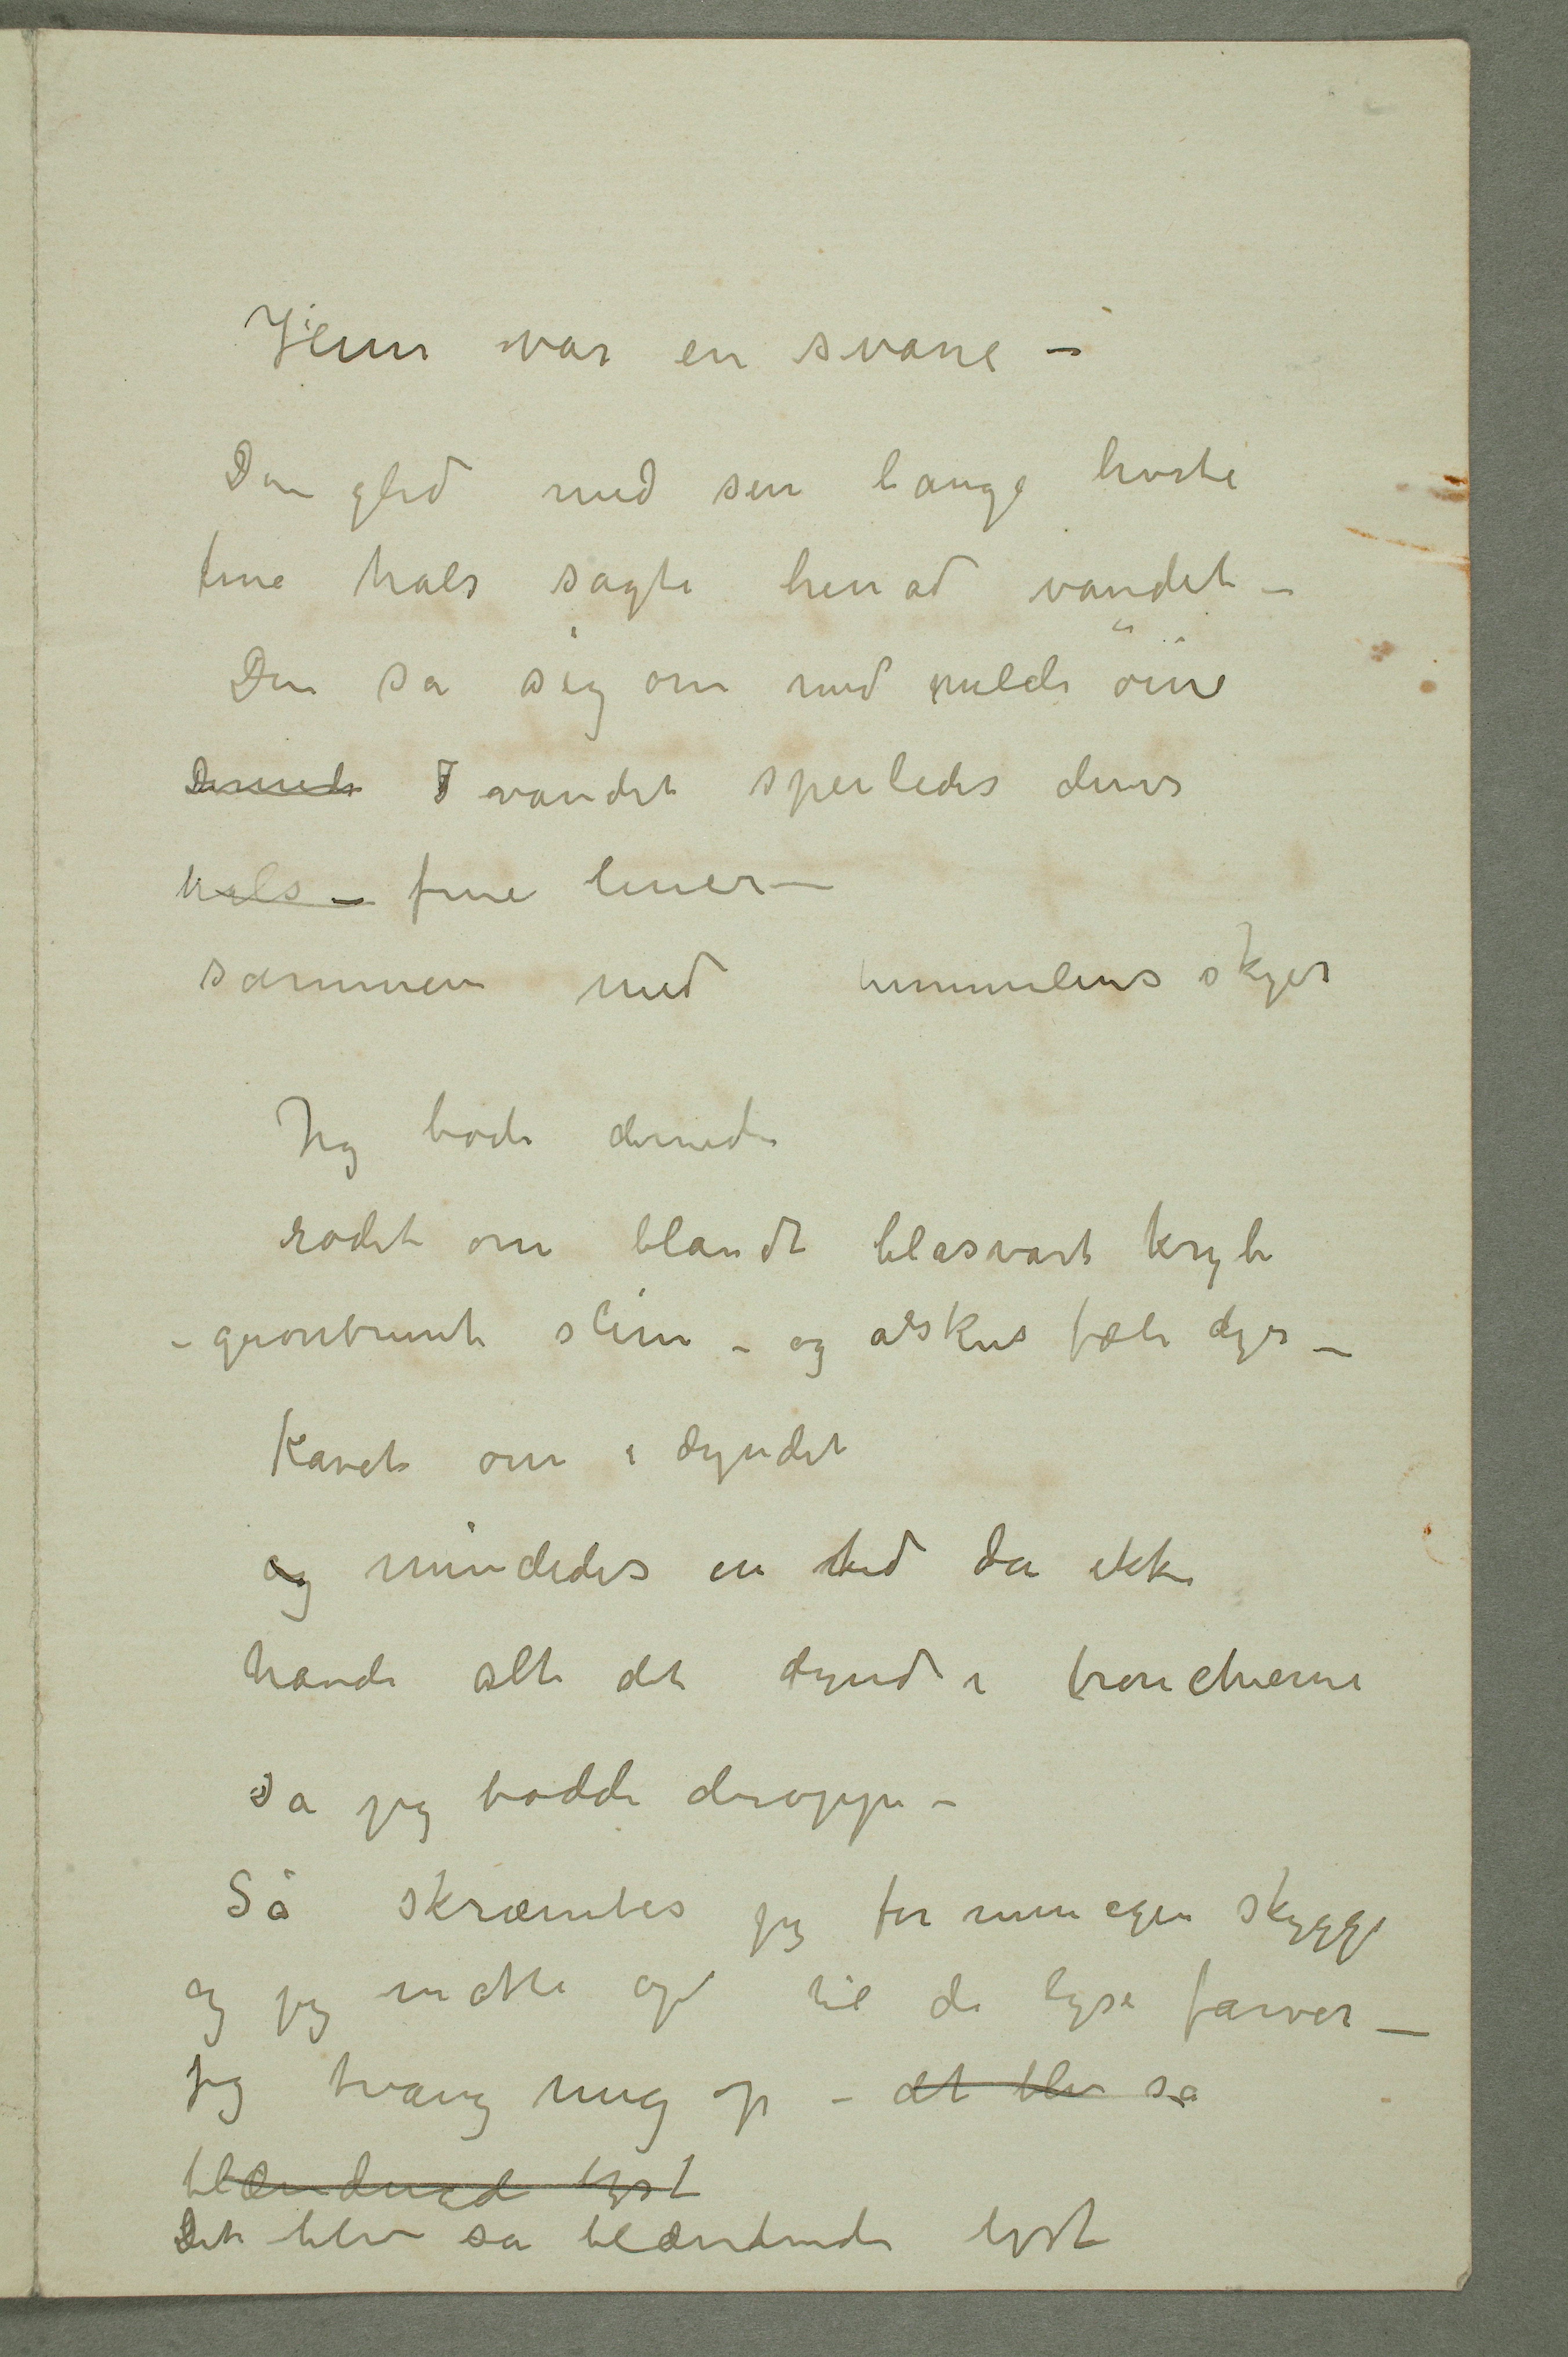 Hun var en svane –
Den gled med sin lange hvite
fine hals sagte henad vandet –
Den sa sig om med milde öine
Dernede I vandet speiledes dens
hals – fine linier –
sammen med himmelens skyer
Jeg bode dernede
rodet om blandt blåsvart kryb
– grønbrunt slim – og alskens fæle dyr –
Kavet om i dyndet
og mindedes en tid da ikke
havde alt det dynd i bronchierne
Da jeg bodde deroppe –
Så skræmtes jeg for min egen skygge
og jeg måtte op til de lyse farver –
Jeg tvang mig op – det blev så
blændende lyst
Det blev så blændende lyst